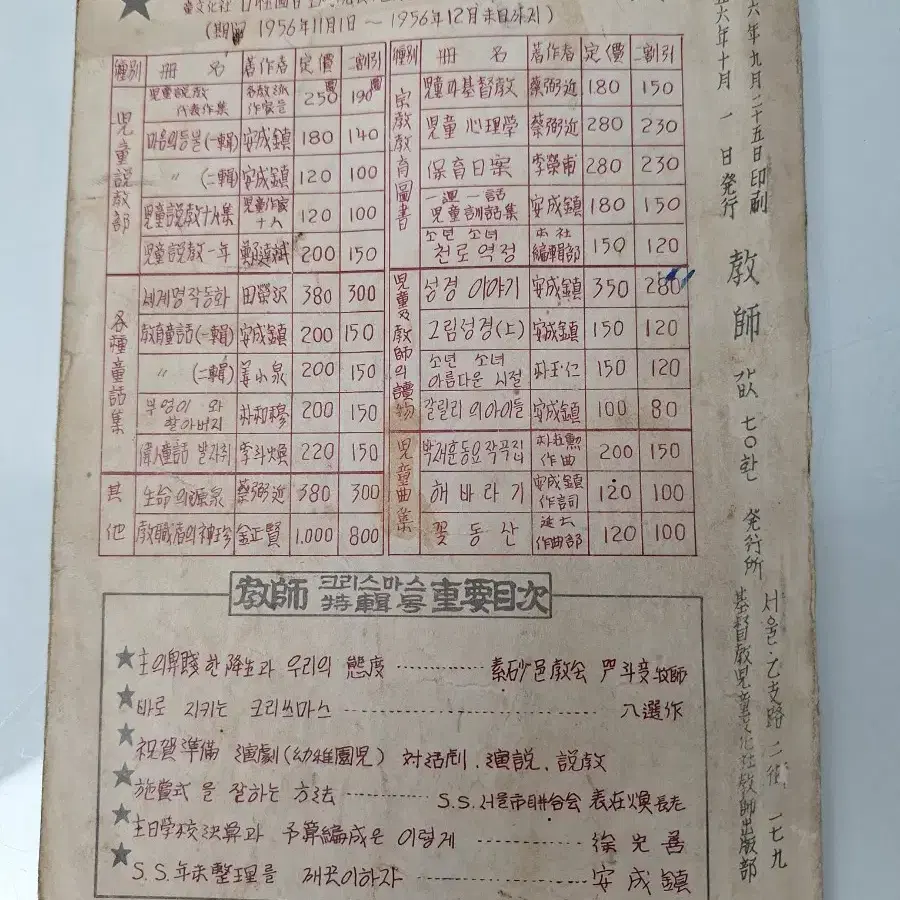 (期間 1956年11月1日 ~ 1956年12月末日까지)
種別 冊名 著作者 定價 二割引
児童説教部
児童説教代表作集 各教派作家들 250圜 190圜
마음의등불 (一輯) 安成鎮 180 140
〃 (二輯) 安成鎮 120 100
児童説教十人集 児童作家十人 120 100
児童説教一年 鄭達斌 200 150
各種童話集
세계명작동화 田榮沢 380 300
教育童話 (一輯) 安成鎮 200 150
〃 (二輯) 姜小泉 200 150
부엉이와 할아버지 朴和穆 200 150
偉人童話 발자취 李斗煥 220 150
其他
生命의源泉 蔡弼近 380 300
教職者의神珍 金正賢 1.000 800
種別 冊名 著作者 定價 二割引
宗教教育圖書
児童과基督教 蔡弼近 180 150
児童心理學 蔡弼近 280 230
保育日案 李榮甫 280 230
一週一話 児童訓話集 安成鎮 180 150
소년 소녀 천로역정 本社編輯部 150 120
児童及教師의讀物
성경 이야기 安成鎮 350 280
그림성경(上) 安成鎮 150 120
소년 소녀 아름다운 시절 朴玉仁 150 120
갈릴리의아이들 安成鎮 100 80
児童曲集
박재훈동요작곡집 作曲 200 150
해바라기 安成鎮作詞 120 100
꽃동산 作曲部 120 100
教師 크리스마스特輯号 重要目次
★主의卑賤한降生과 우리의 態度 ········ 素砂邑教会 尹斗燮牧師
★바로 지키는 크리쓰마스 ········ 八選作
★祝賀準備 演劇(幼稚園児) 対活劇、演説、説教
★施賞式을 잘하는 方法 ········ S.S.서울市聯合会 表在煥長老
★主日学校決算과 予算編成은 이렇게 ········ 徐光善
★S.S.年末整理를 깨끗이하자 ········ 安成鎮
六年九月二十五日印刷
五六年十月一日発行
教師 값 七○환
発行所
서울·乙支路二街一七九
基督教児童文化社教師出版部